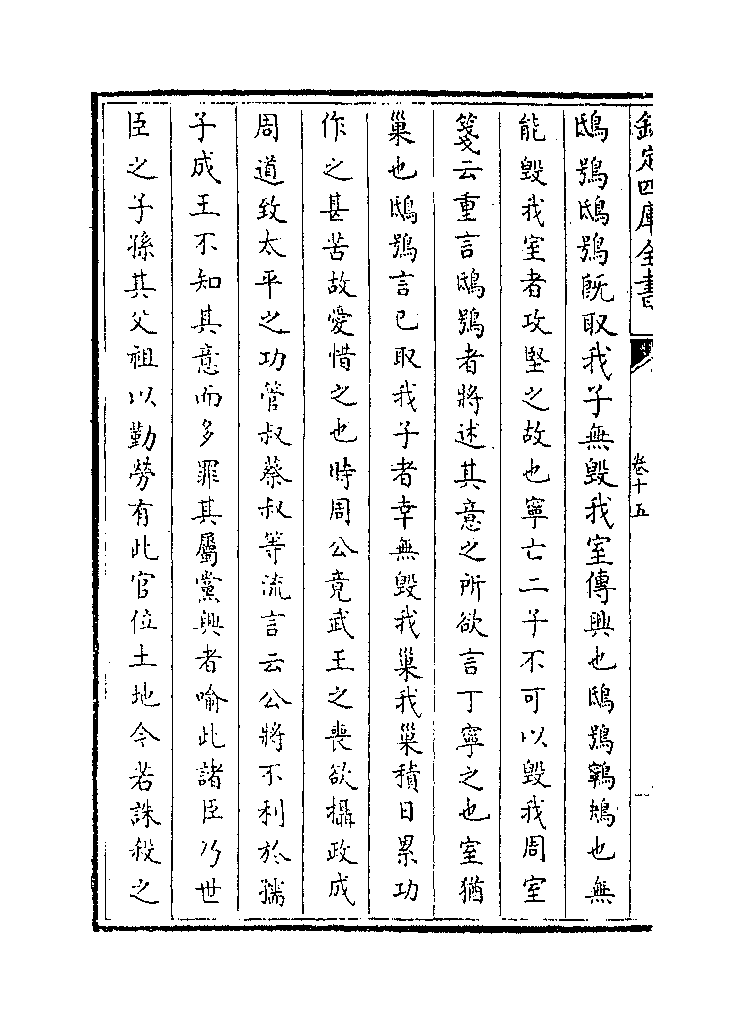 欽定四庫全書
卷十五
鴟鴞鴟鴞既取我子無毀我室傳興也鴟鴞鸋鴂也無
能毀我室者攻堅之故也寧亡二子不可以毀我周室
箋云重言鴟鴞者將述其意之所欲言丁寧之也室猶
巢也鴟鴞言已取我子者幸無毀我巢我巢積日累功
作之甚苦故愛惜之也時周公竟武王之喪欲攝政成
周道致太平之功管叔蔡叔等流言云公將不利於孺
子成王不知其意而多罪其屬黨興者喻此諸臣乃世
臣之子孫其父祖以勤勞有此官位土地今若誅殺之